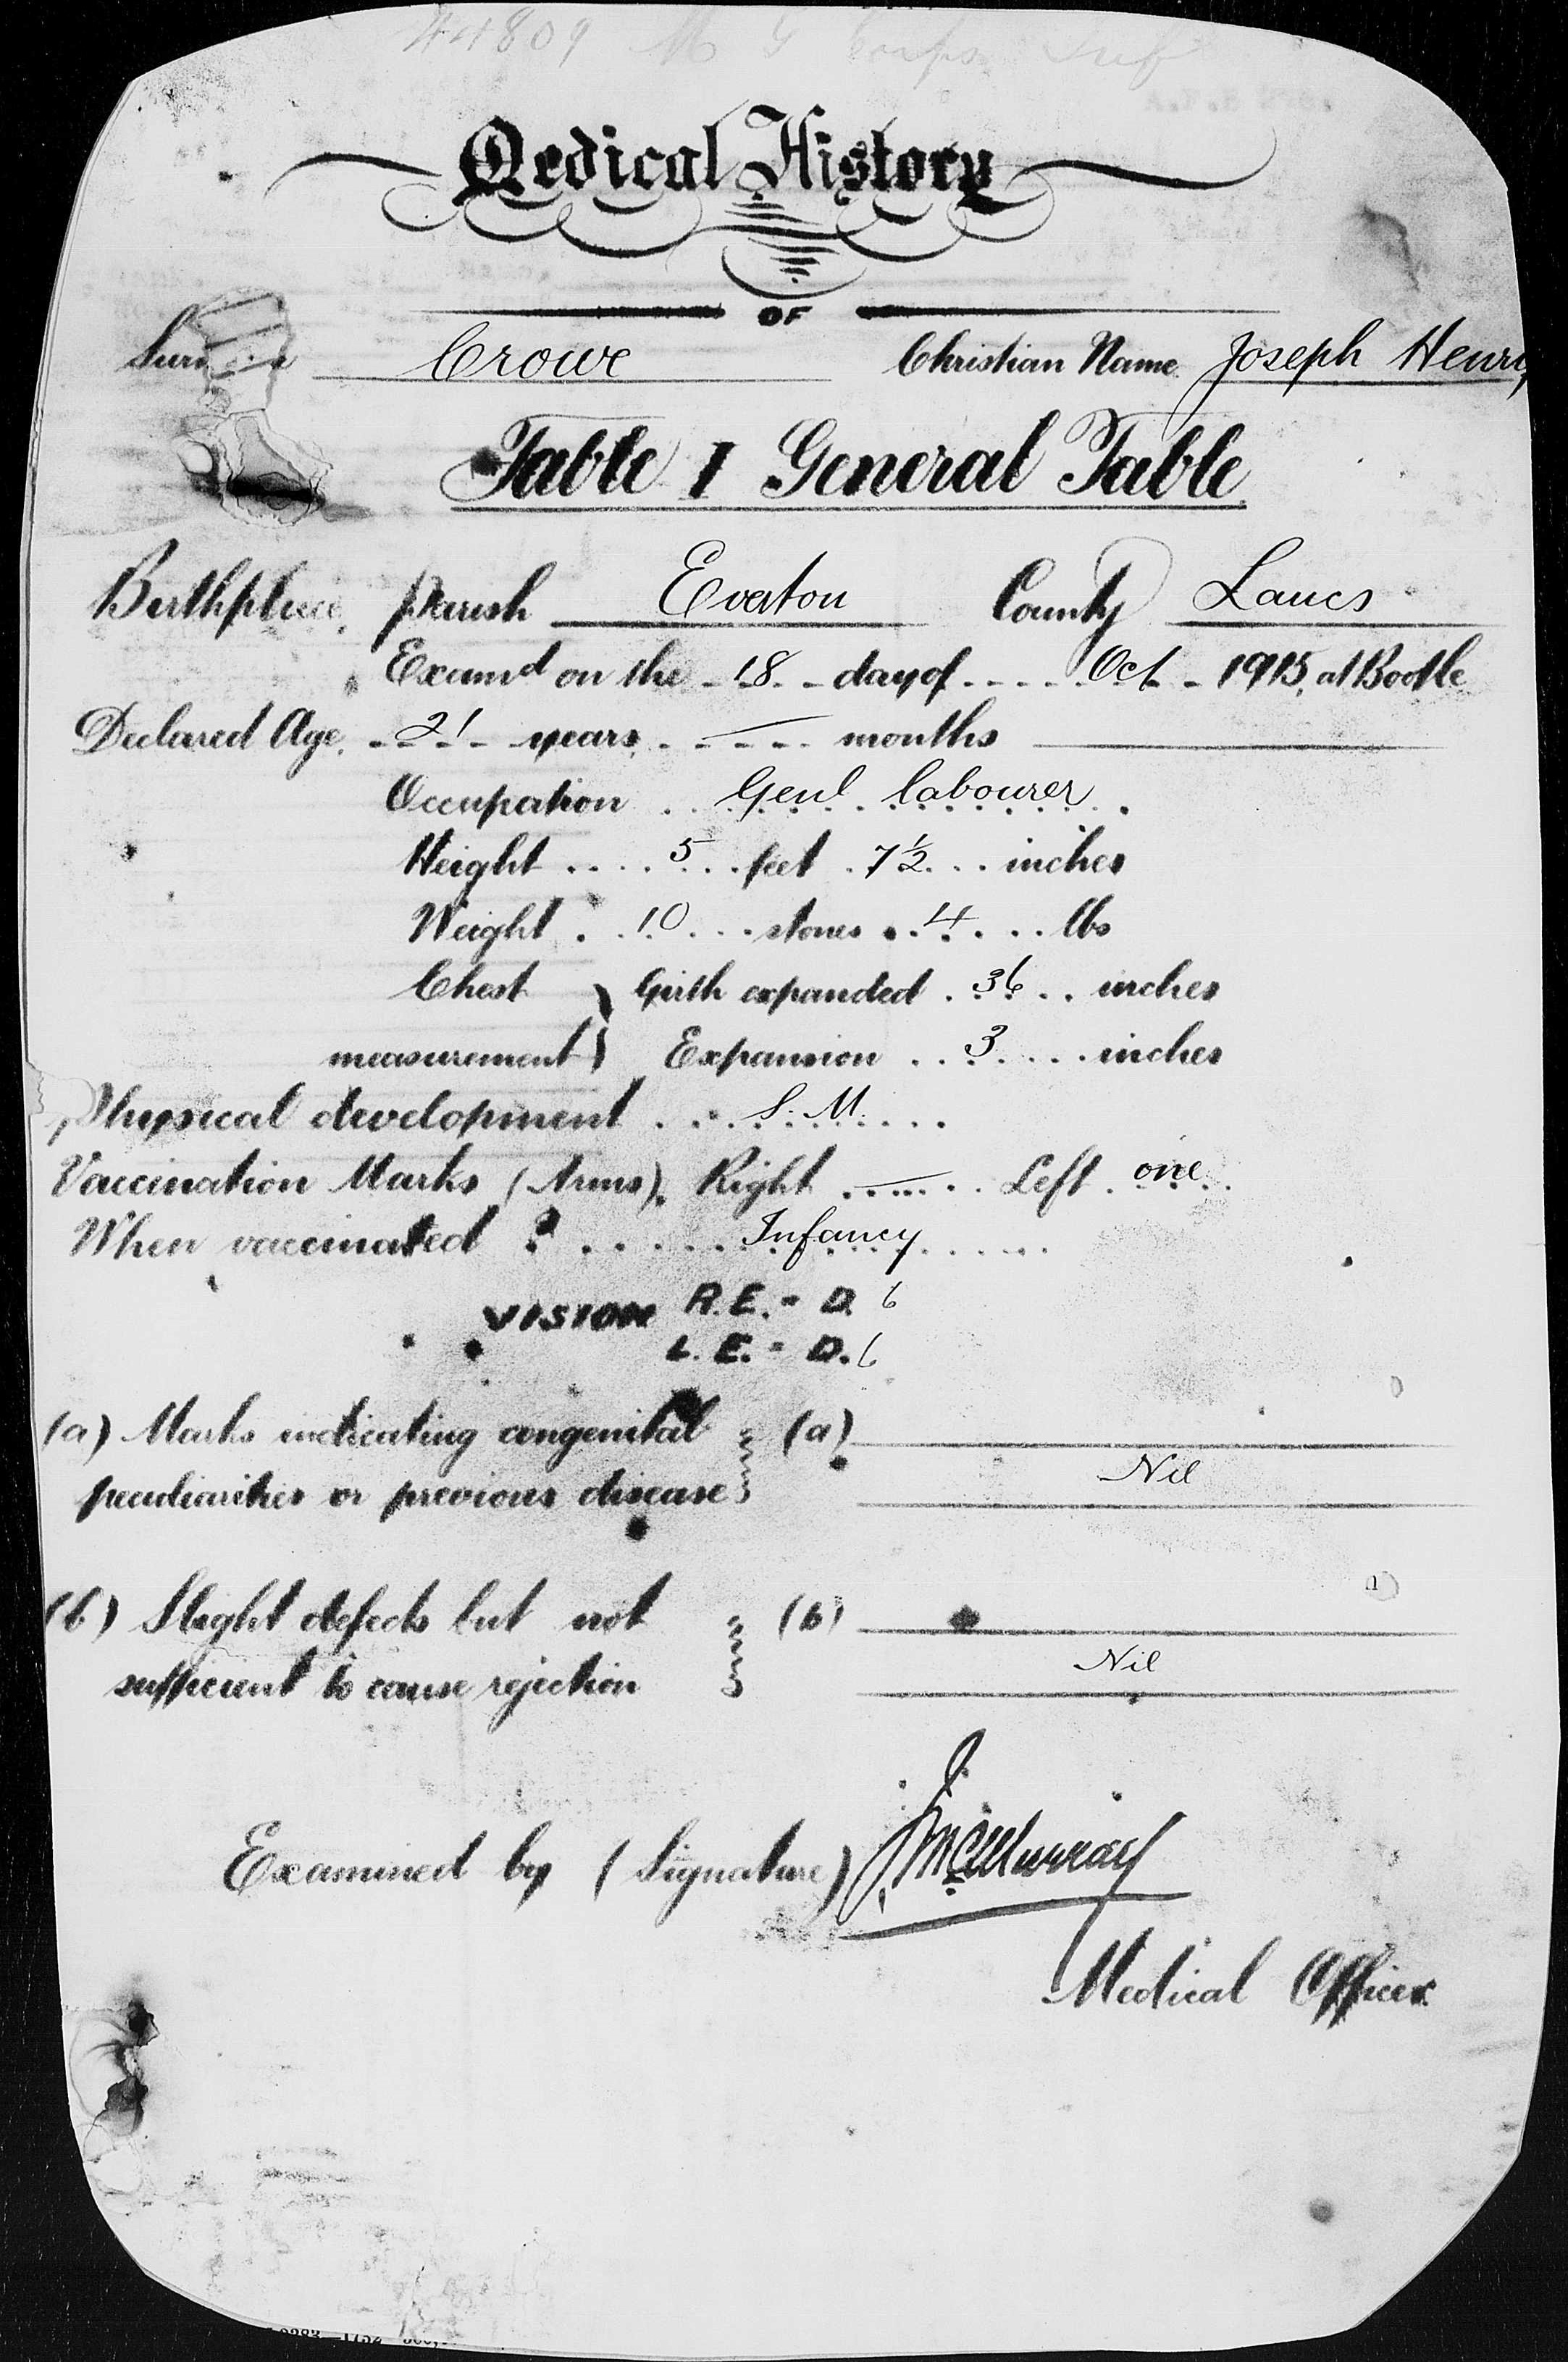 44809 M G Corps
Medical History
OF
Surname Crowe Christian Name Joseph Henry
Table I General Table
Birthplace, Parish Everton County Lancs
Examd on the 18 day of Oct 1915, at Bootle
Declared Age. 21 years — months
Occupation Genl labourer
Height 5 feet 7½ inches
Weight 10 stones 4 lbs
Chest } Girth expanded 36 inches
measurement } Expansion 3 inches
Physical development S. M.
Vaccination Marks (Arms). Right — Left one
When vaccinated ? Infancy
VISION R.E. = D. 6
L.E. = D. 6
(a) Marks indicating congenital } (a)
peculiarities or previous disease } Nil
(b) Slight defects but not } (b)
sufficient to cause rejection } Nil
Examined by (Signature)
Medical Officer.